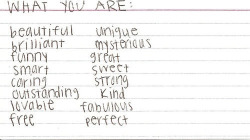 WHAT YOU ARE:
beautiful unique
brilliant mysterious
funny great
smart sweet
caring strong
outstanding kind
lovable fabulous
free perfect